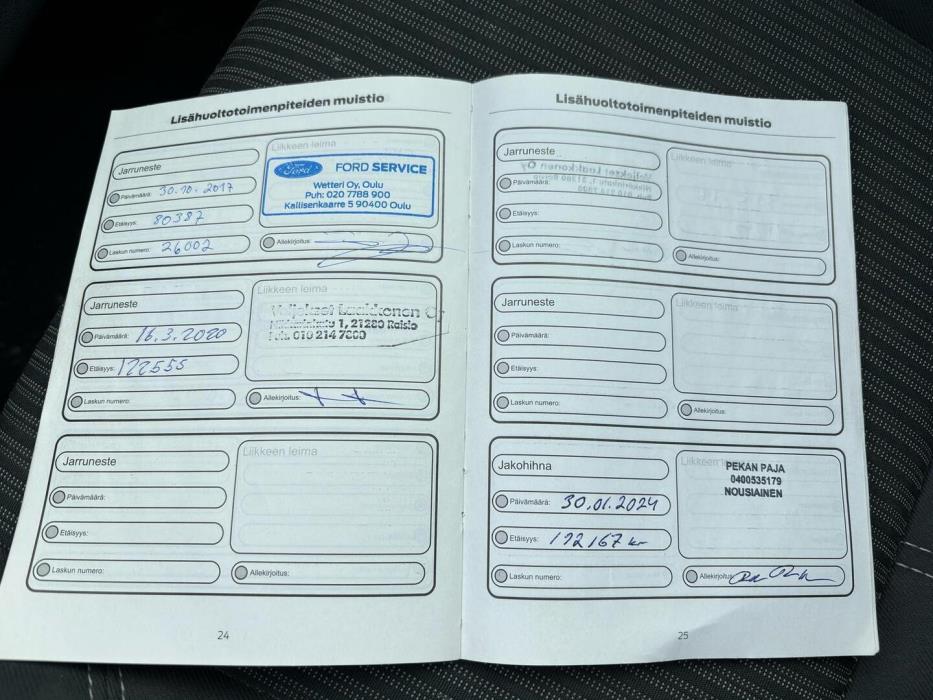 Lisähuoltotoimenpiteiden muistio
Jarruneste
Päivämäärä: 30.10.2017
Etäisyys: 80387
Laskun numero: 26002
Liikkeen leima
Ford FORD SERVICE
Wetteri Oy, Oulu
Puh: 020 7788 900
Kallisenkaarre 5 90400 Oulu
Allekirjoitus:
Jarruneste
Päivämäärä: 16.3.2020
Etäisyys: 122555
Laskun numero:
Liikkeen leima
Veljekset Laakkonen Oy
1, 21280 Raisio
Puh. 010 214 7800
Allekirjoitus:
Jarruneste
Päivämäärä:
Etäisyys:
Laskun numero:
Liikkeen leima
Allekirjoitus:
24
Lisähuoltotoimenpiteiden muistio
Jarruneste
Päivämäärä:
Etäisyys:
Laskun numero:
Liikkeen leima
Allekirjoitus:
Jarruneste
Päivämäärä:
Etäisyys:
Laskun numero:
Liikkeen leima
Allekirjoitus:
Jakohihna
Päivämäärä: 30.01.2024
Etäisyys: 172167 km
Laskun numero:
Liikkeen leima
PEKAN PAJA
0400535179
NOUSIAINEN
Allekirjoitus:
25